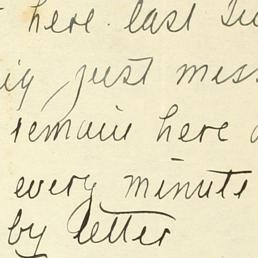 here last
just
remain here
every minute
by letter